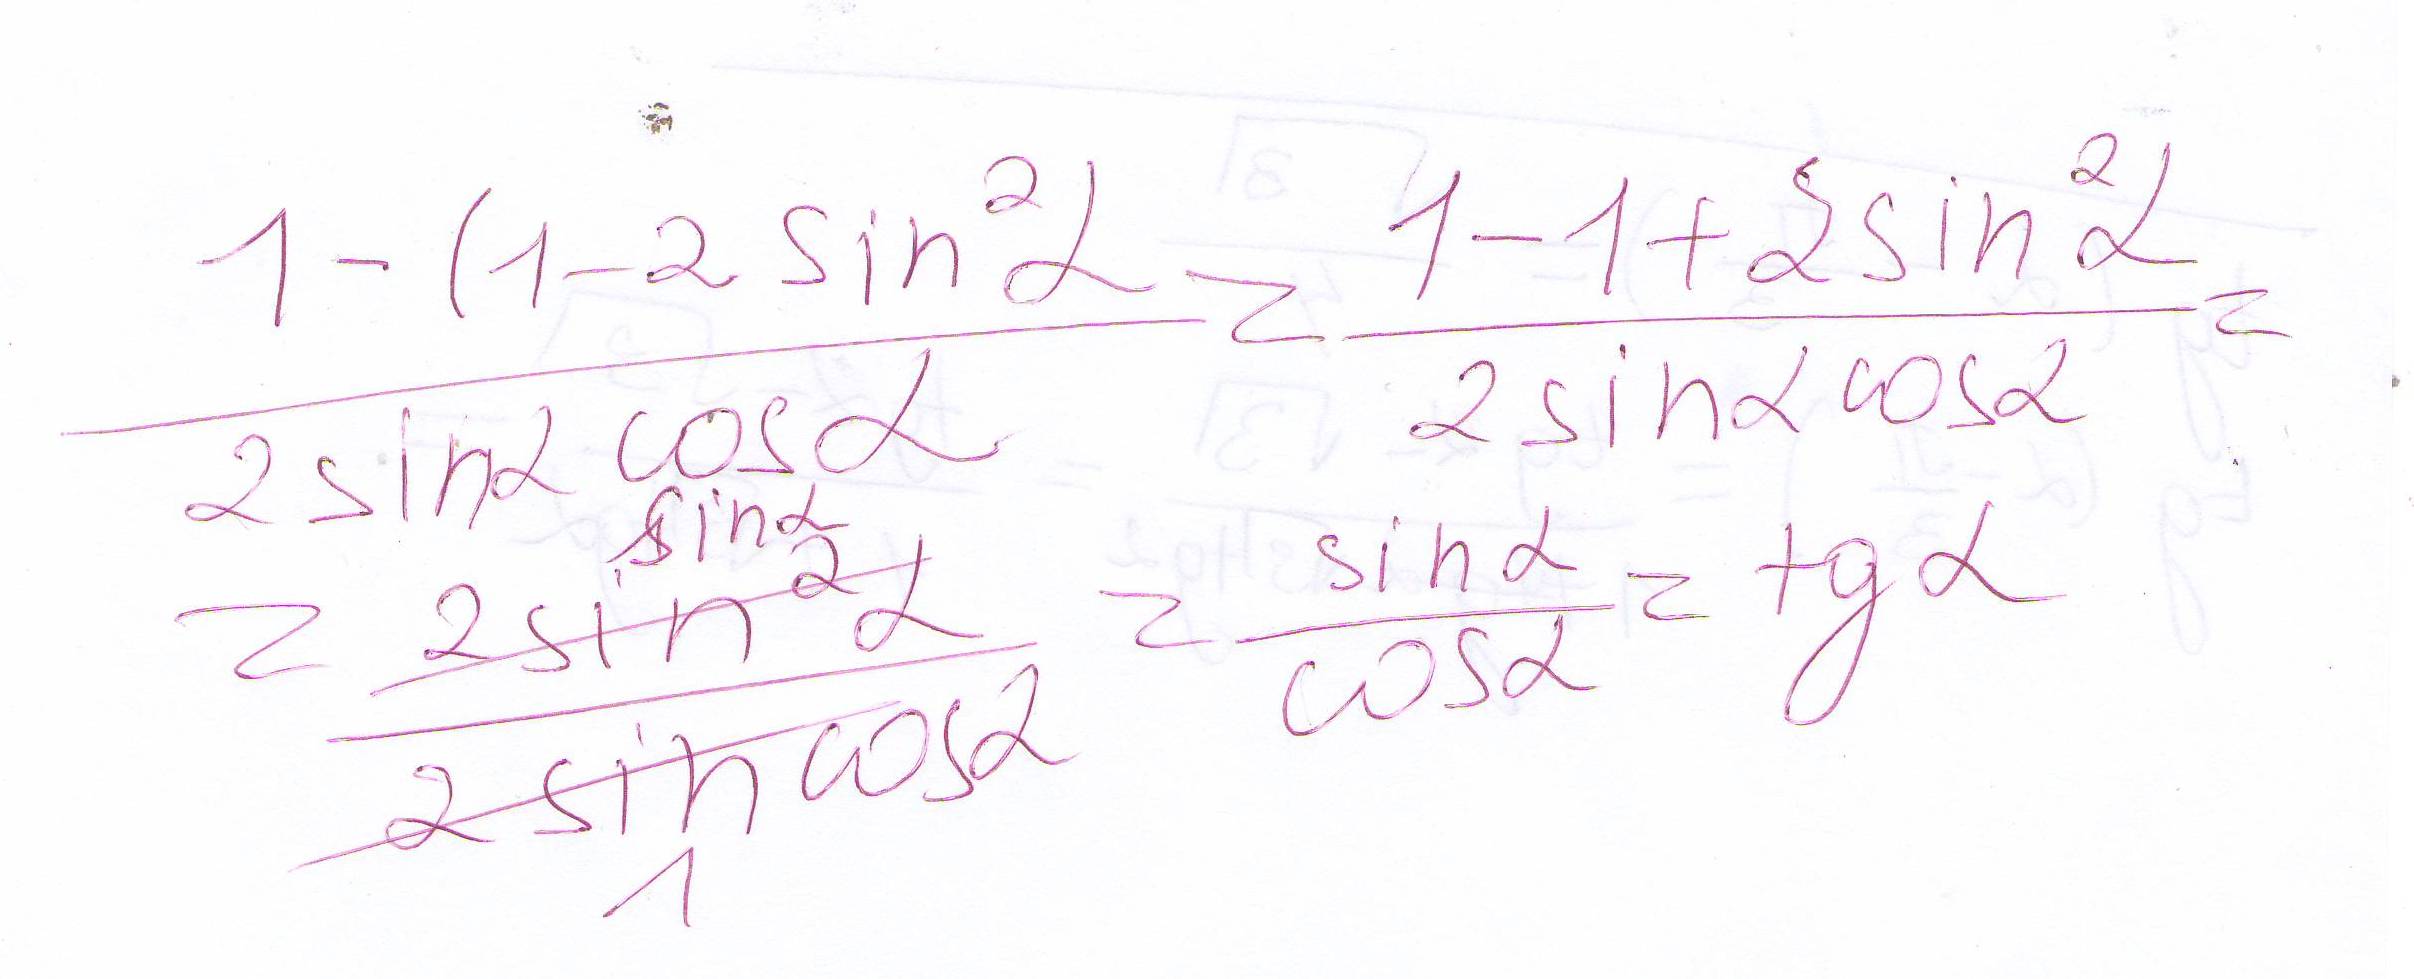 1 - (1 - 2 sin²α / 2 sinα cosα = 1 - 1 + 2 sin²α / 2 sinα cosα =
= 2 sin²α sinα / 2 sin cosα 1 = sinα / cosα = tg α